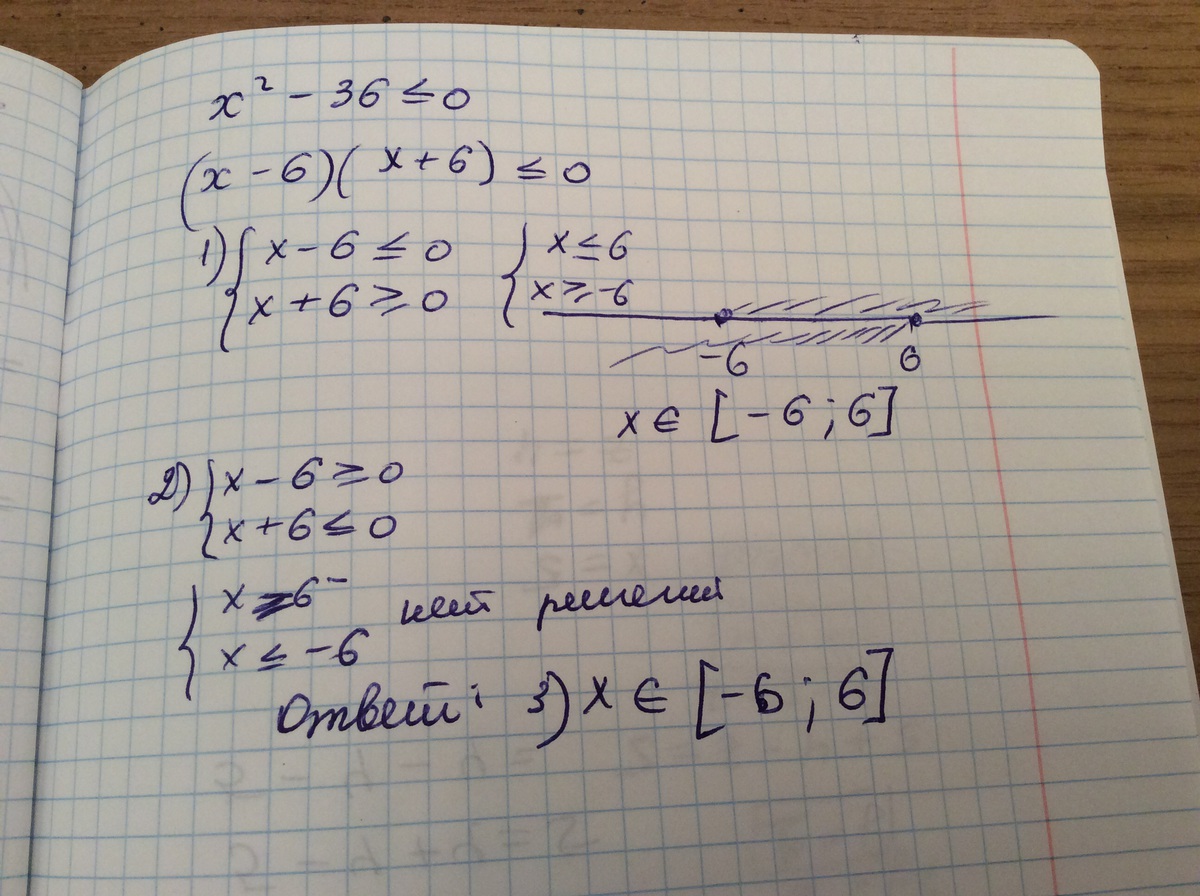 x² - 36 ≤ 0
(x - 6)(x + 6) ≤ 0
1) { x - 6 ≤ 0
x + 6 ≥ 0
{ x ≤ 6
x ≥ -6
-6 6
x ∈ [-6; 6]
2) { x - 6 ≥ 0
x + 6 ≤ 0
{ x ≥ 6
x ≤ -6
нет решений
Ответ: 3) x ∈ [-6; 6]